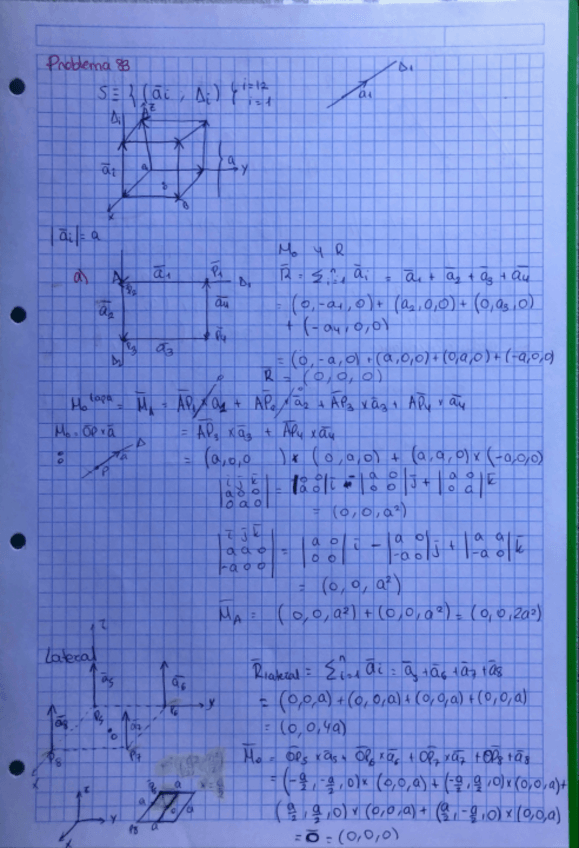 Problema 83
S ≡ {(āi , Δi)} i=12 i=1
Δ1
a1
Δi z
ā2 a a y
x
|āi| = a
a) A ā1 P̄1 Δ1
ā2 ā4
P3 P̄4
Δ2 ā3
M0 y R
R̄ = Σ āi = ā1 + ā2 + ā3 + ā4
= (0, -a1, 0) + (a2, 0, 0) + (0, a3, 0)
+ (-a4, 0, 0)
= (0, -a, 0) + (a, 0, 0) + (0, a, 0) + (-a, 0, 0)
R = (0, 0, 0)
M0 tapa = M̄A = AP1 × a1 + AP2 × ā2 + AP3 × a3 + AP4 × a4
M0 = OP × ā
= AP3 × a3 + AP4 × a4
Δ
a
P
= (a, 0, 0) × (0, a, 0) + (a, a, 0) × (-a, 0, 0)
|i j k| |a 0 0| |0 a 0| = |0 0| |a 0| ī - |a 0| |0 0| j̄ + |a 0| |0 a| k̄
= (0, 0, a²)
|i j k| |a a 0| |-a 0 0| = |a 0| |0 0| ī - |a 0| |-a 0| j̄ + |a a| |-a 0| k̄
= (0, 0, a²)
M̄A = (0, 0, a²) + (0, 0, a²) = (0, 0, 2a²)
z
Lateral
ā5 ā6
P5 P6 y
ā8
P8 P7
x
R̄lateral = Σ āi = ā5 + ā6 + ā7 + ā8
= (0, 0, a) + (0, 0, a) + (0, 0, a) + (0, 0, a)
= (0, 0, 4a)
M̄0 = OP5 × a5 + OP6 × a6 + OP7 × a7 + OP8 + a8
= (-a/2, -a/2, 0) × (0, 0, a) + (-a/2, a/2, 0) × (0, 0, a) +
(a/2, a/2, 0) × (0, 0, a) + (a/2, -a/2, 0) × (0, 0, a)
= 0̄ = (0, 0, 0)
y
x
a
a a
P8 a